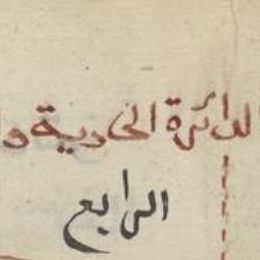 الدائرة الحادية و
الرابع